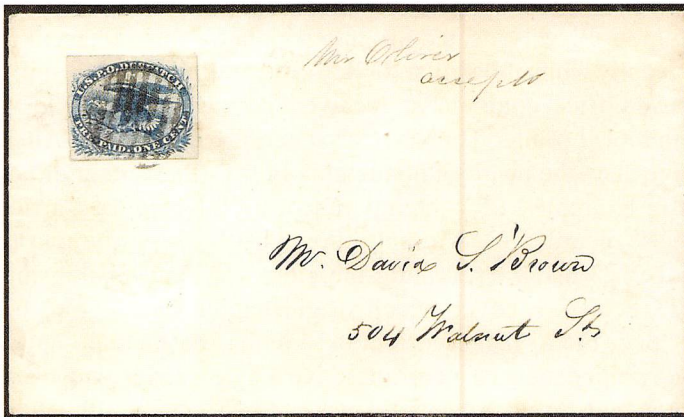 U.S.P.O. DESPATCH
PRE-PAID. ONE CENT.
Mr Oliver
Mr. David S. Brown
504 Walnut St